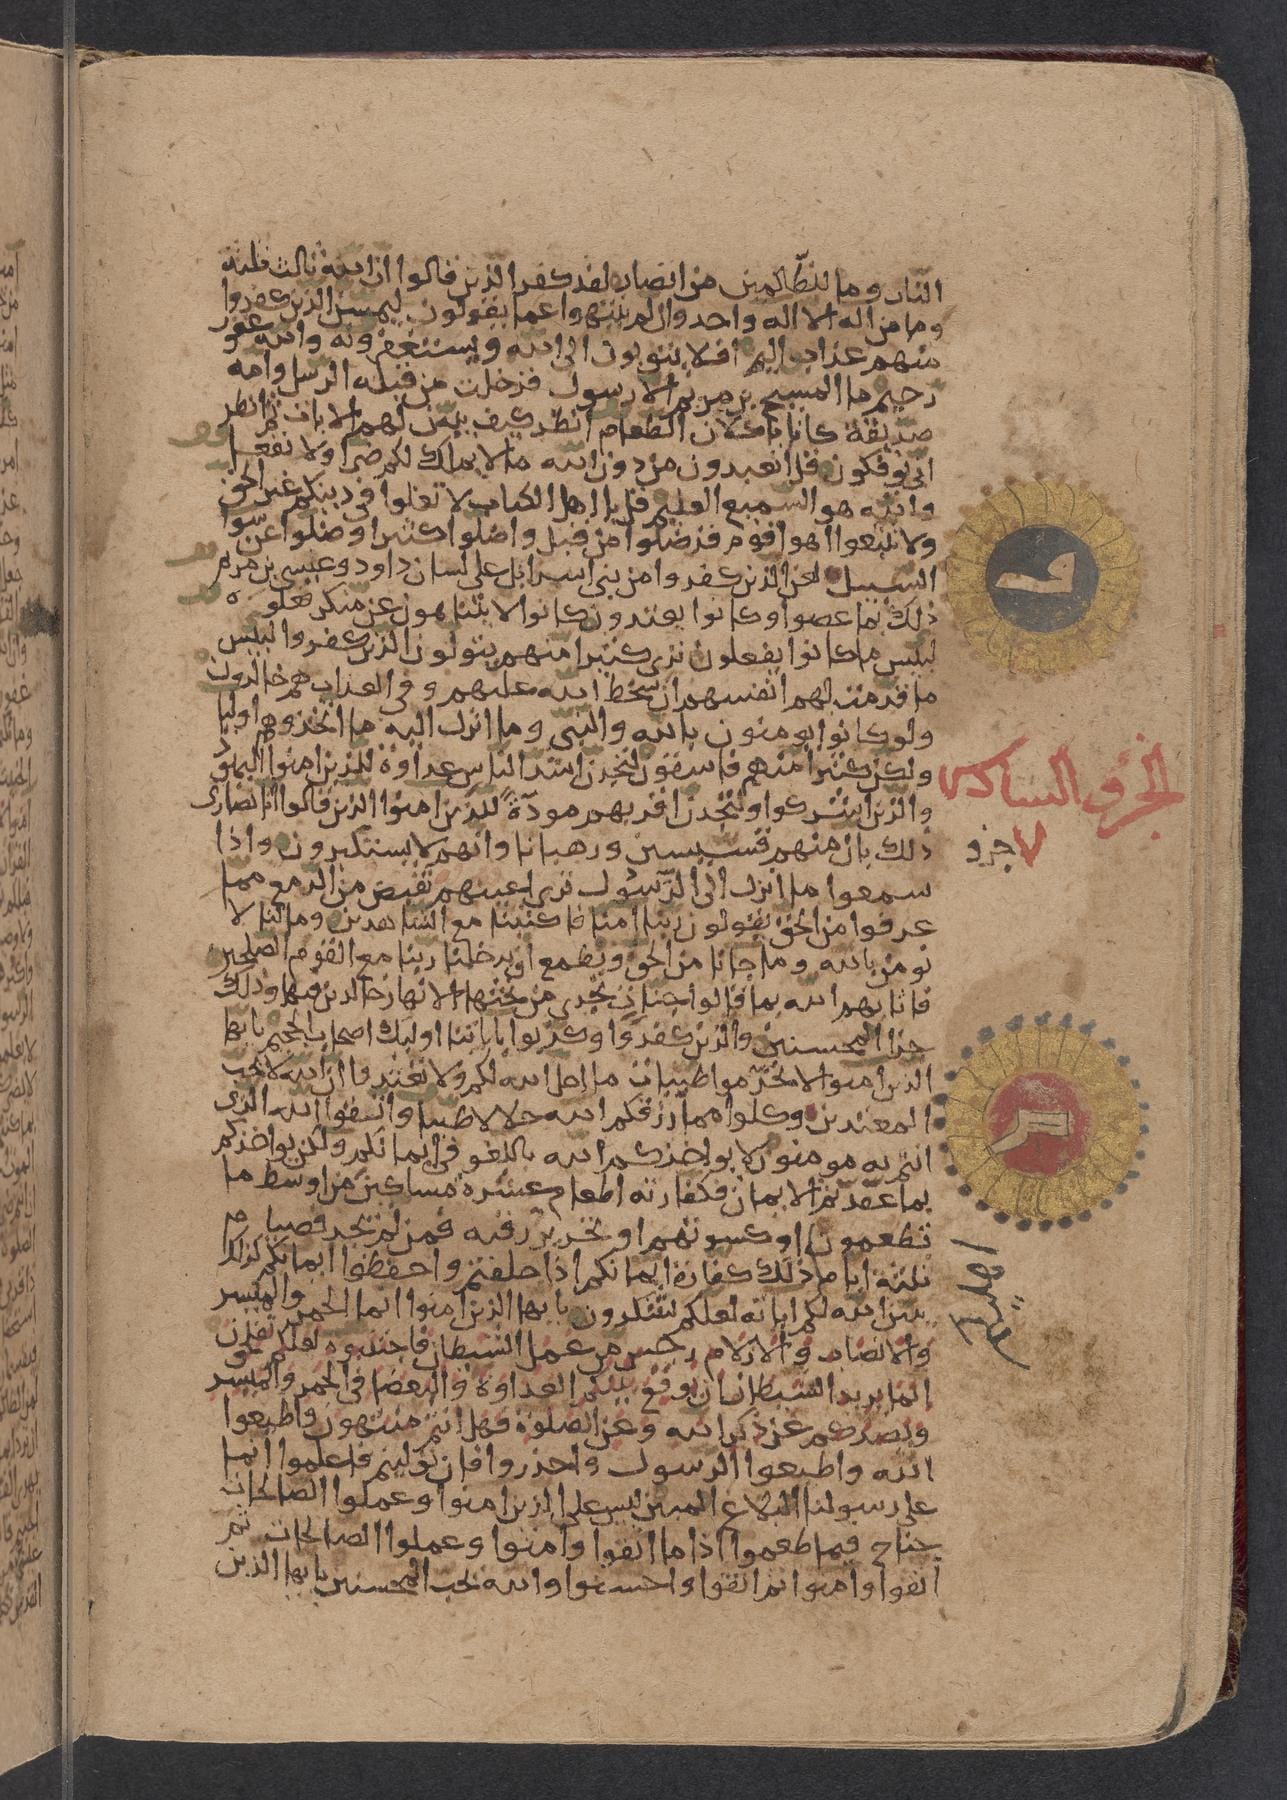 النار وما للظالمين من انصار لقد كفر الذين قالوا ان الله ثالث ثلثة
وما من اله الا اله واحد وان لم ينتهوا عما يقولون ليمسن الذين كفروا
منهم عذاب اليم افلا يتوبون الى الله ويستغفرونه والله غفور
رحيم ما المسيح بن مريم الا رسول قد خلت من قبله الرسل وامه
صديقة كانا ياكلان الطعام انظر كيف نبين لهم الايات ثم انظر
انى يوفكون قل اتعبدون من دون الله ما لا يملك لكم ضرا ولا نفعا
والله هو السميع العليم قل يا اهل الكتاب لا تغلوا في دينكم غير الحق
ولا تتبعوا اهوا قوم قد ضلوا من قبل واضلوا كثيرا وضلوا عن سوا
السبيل لعن الذين كفروا من بني اسرايل على لسان داود وعيسى بن مريم
ذلك بما عصوا وكانوا يعتدون كانوا لا يتناهون عن منكر فعلوه
لبيس ما كانوا يفعلون ترى كثيرا منهم يتولون الذين كفروا لبيس
ما قدمت لهم انفسهم ان سخط الله عليهم وفي العذاب هم خالدون
ولو كانوا يومنون بالله والنبي وما انزل اليه ما اتخذوهم اوليا
ولكن كثيرا منهم فاسقون لتجدن اشد الناس عداوة للذين امنوا اليهود
والذين اشركوا ولتجدن اقربهم مودة للذين امنوا الذين قالوا انا نصارى
ذلك بان منهم قسيسين ورهبانا وانهم لا يستكبرون واذا
سمعوا ما انزل الى الرسول ترى اعينهم تفيض من الدمع مما
عرفوا من الحق يقولون ربنا امنا فاكتبنا مع الشاهدين وما لنا لا
نومن بالله وما جانا من الحق ونطمع ان يدخلنا ربنا مع القوم الصلحين
فاثابهم الله بما قالوا جنات تجري من تحتها الانهار خالدين فيها وذلك
جزا المحسنين والذين كفروا وكذبوا باياتنا اوليك اصحاب الجحيم يايها
الذين امنوا لا تحرموا طيبات ما احل الله لكم ولا تعتدوا ان الله لا يحب
المعتدين وكلوا مما رزقكم الله حلالا طيبا واتقوا الله الذي
انتم به مومنون لا يواخذكم الله باللغو في ايمانكم ولكن يواخذكم
بما عقدتم الايمان فكفارته اطعام عشرة مساكين من اوسط ما
تطعمون او كسوتهم او تحرير رقبة فمن لم يجد فصيام
ثلثة ايام ذلك كفارة ايمانكم اذا حلفتم واحفظوا ايمانكم كذلك
يبين الله لكم اياته لعلكم تشكرون يايها الذين امنوا انما الخمر والميسر
والانصاب والازلام رجس من عمل الشيطان فاجتنبوه لعلكم تفلحون
انما يريد الشيطان ان يوقع بينكم العداوة والبغضا في الخمر والميسر
ويصدكم عن ذكر الله وعن الصلوة فهل انتم منتهون واطيعوا
الله واطيعوا الرسول واحذروا فان توليتم فاعلموا انما
على رسولنا البلاغ المبين ليس على الذين امنوا وعملوا الصالحات
جناح فيما طعموا اذا ما اتقوا وامنوا وعملوا الصالحات ثم
اتقوا وامنوا ثم اتقوا واحسنوا والله يحب المحسنين يايها الذين
الجزو السادس
٧ جزو